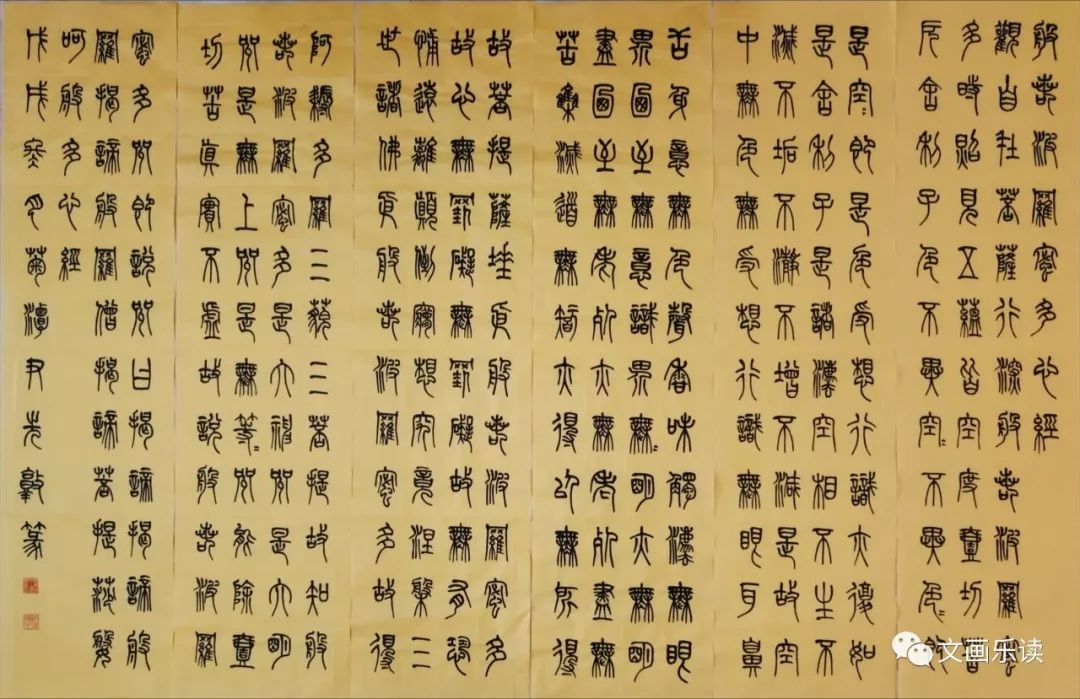 般若波羅蜜多心經
觀自在菩薩行深般若波羅蜜
多時照見五蘊皆空度壹切苦
厄舍利子色不異空〻不異色〻即
是空〻即是色受想行識亦復如
是舍利子是諸法空相不生不
滅不垢不淨不增不減是故空
中無色無受想行識無眼耳鼻
舌身意無色聲香味觸法無眼
界乃至無意識界無〻明亦無無明
盡乃至無老死亦無老死盡無
苦集滅道無智亦得以無所得
故菩提薩埵依般若波羅蜜多
故心無罣礙無罣礙故無有恐
怖遠離顛倒夢想究竟涅槃三
世諸佛依般若波羅蜜多故得
阿耨多羅三藐三菩提故知般
若波羅蜜多是大神咒是大明
咒是無上咒是無等〻咒能除壹
切苦真實不虛故說般若波羅
蜜多咒即說咒曰揭諦揭諦般
羅揭諦般羅僧揭諦菩提莎婆
呵般多心經
戊戌癸月菊潭尹先敦篆
文画乐读